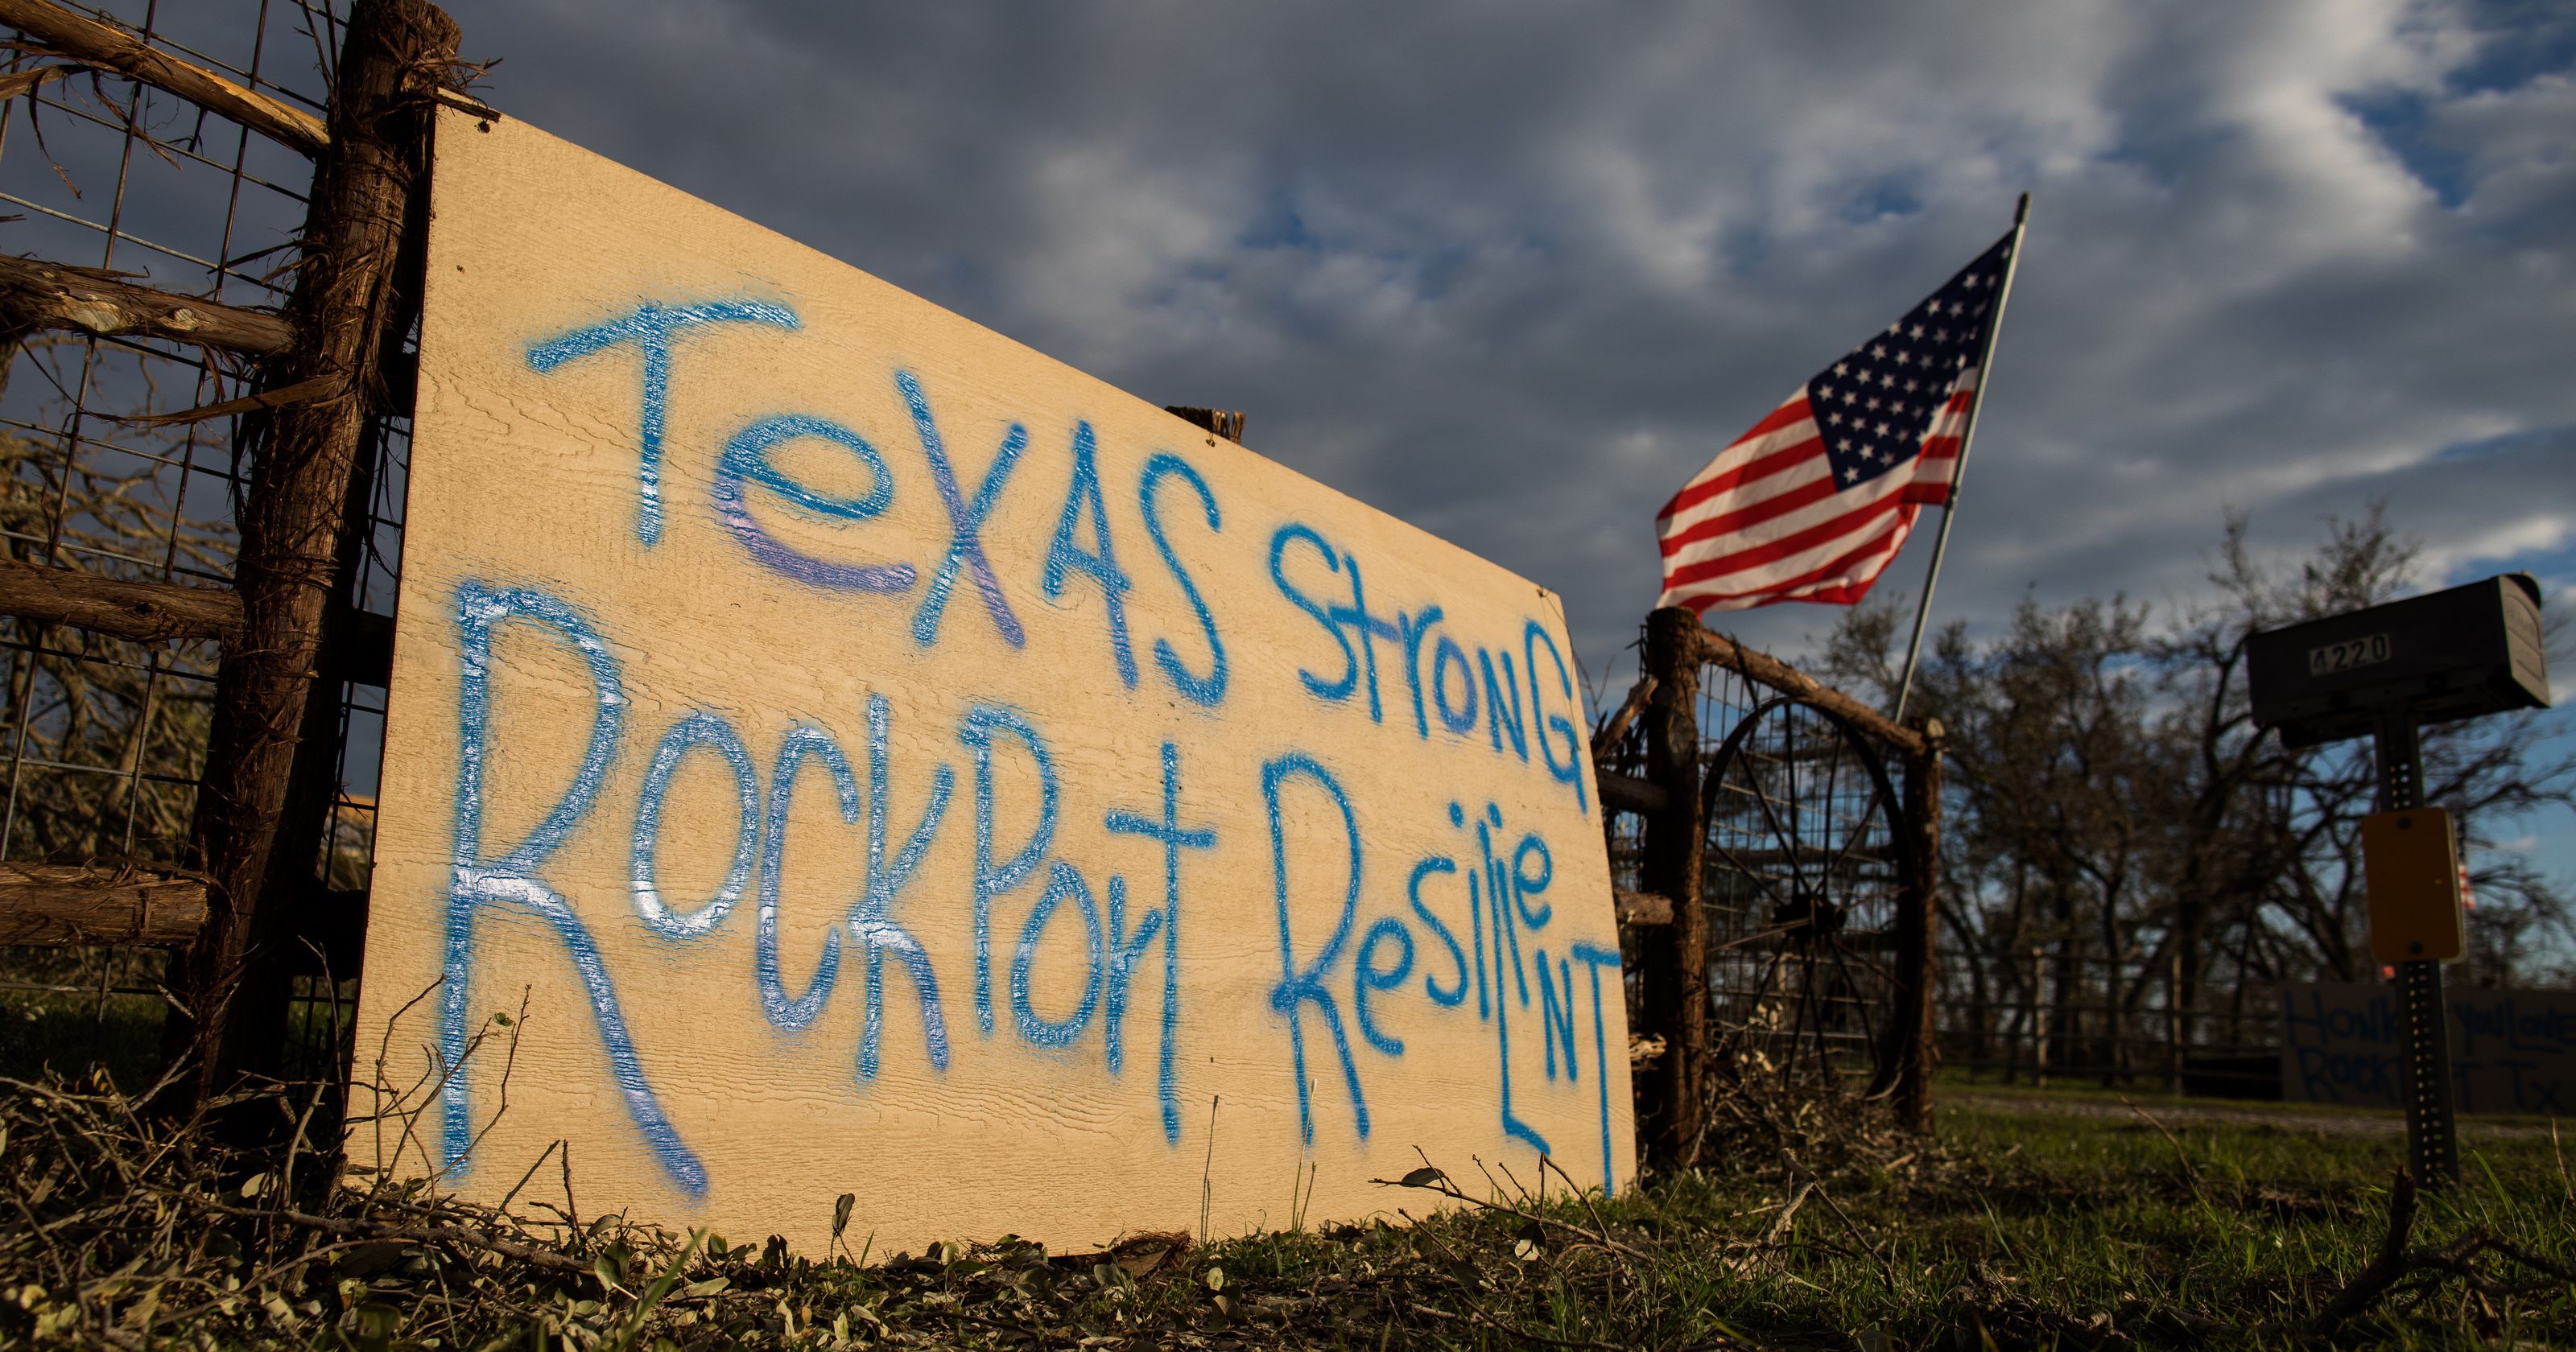 TeXAS StroNG
RockPort ResilieNT
4220
Honk you Love
Rock T Tx